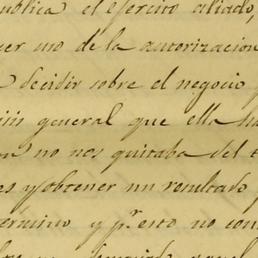 ublica el ejército aliado,
uer uso de la autorizacion
decidir sobre el negocio
general que ella ha
no nos quitaba del t
es y obtener un resultado p
érmino y pr. esto no con